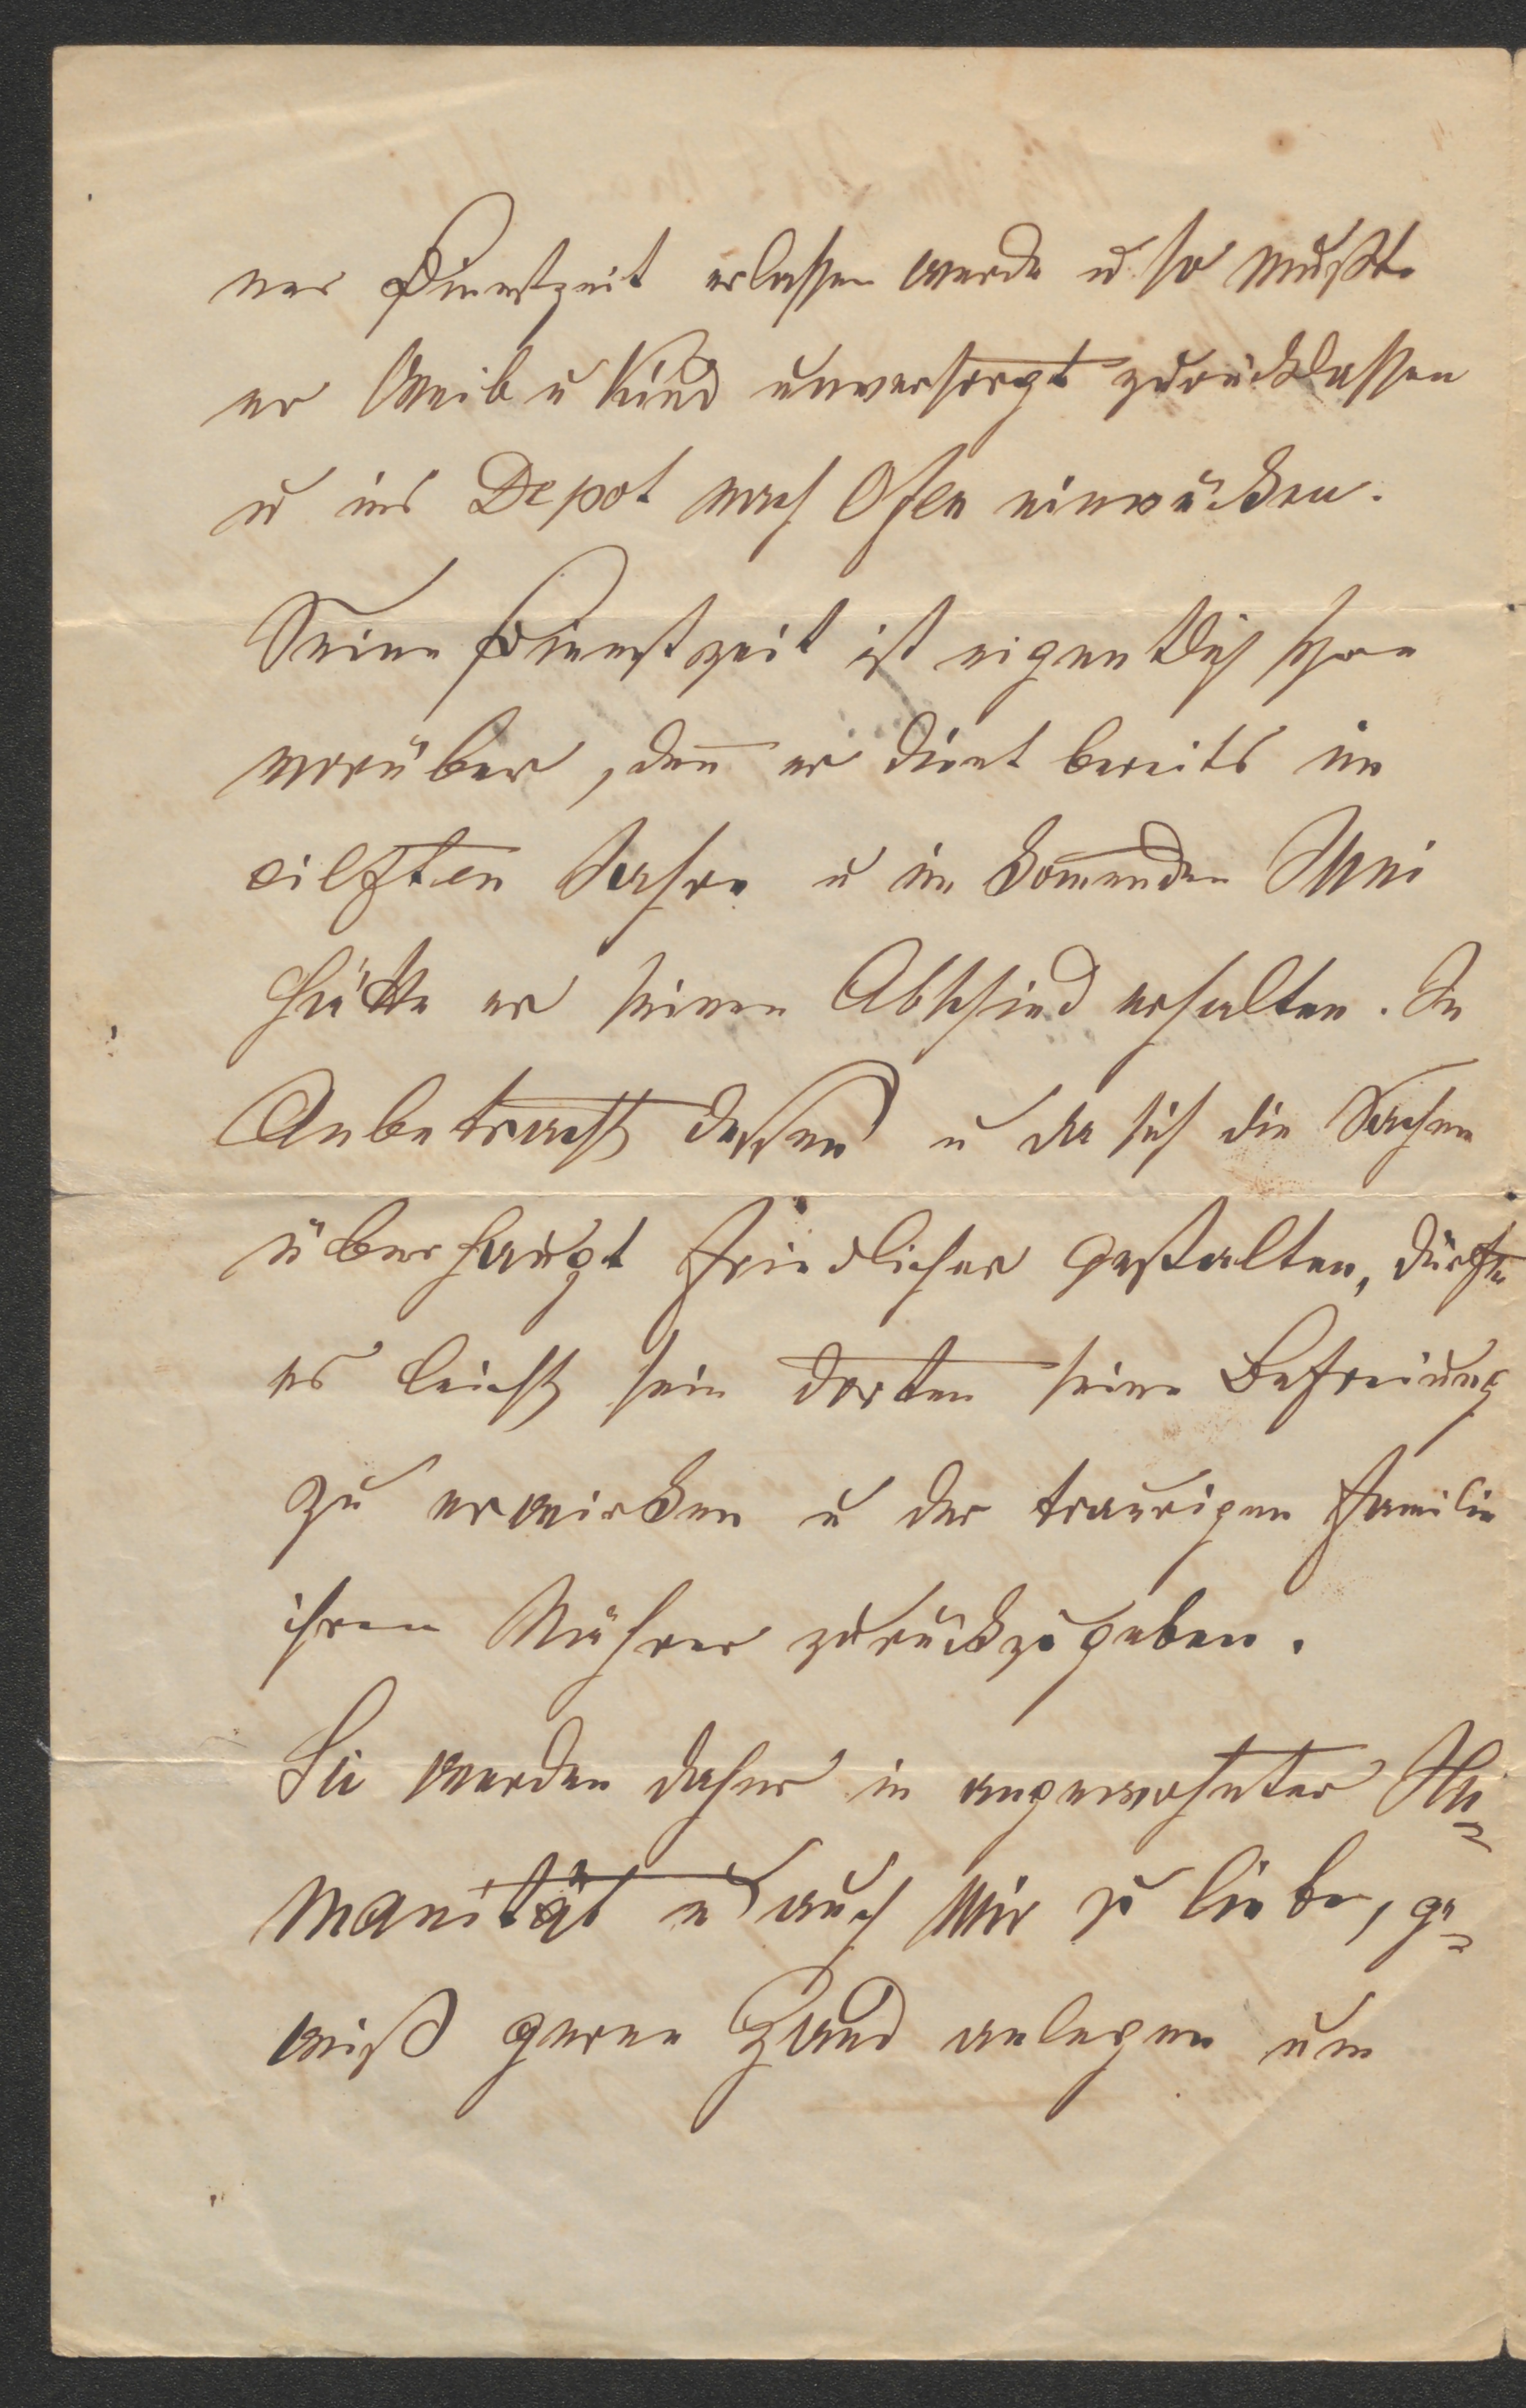 ner Dienstzeit erlassen werde u so mußte
er Weib u Kind unversorgt zurücklassen
u ins Depot nach Ofen einrücken.
Seine Dienstzeit ist eigentlich schon
vorüber, den̄ er dient bereits im
eilften Jahre u im kom̄enden Mai
hätte er seinen Abschied erhalten. In
Anbetracht dessen u da sich die Sachen
überhaupt friedlicher gestalten, dürfte
es leicht sein dorten seine Befreiung
zu erwirken u der traurigen Familie
ihren Nährer zurückzugeben.
Sie werden daher in angewohnter Hu=
manität u auch mir zu liebe, ge=
wiß gerne Hand anlegen um